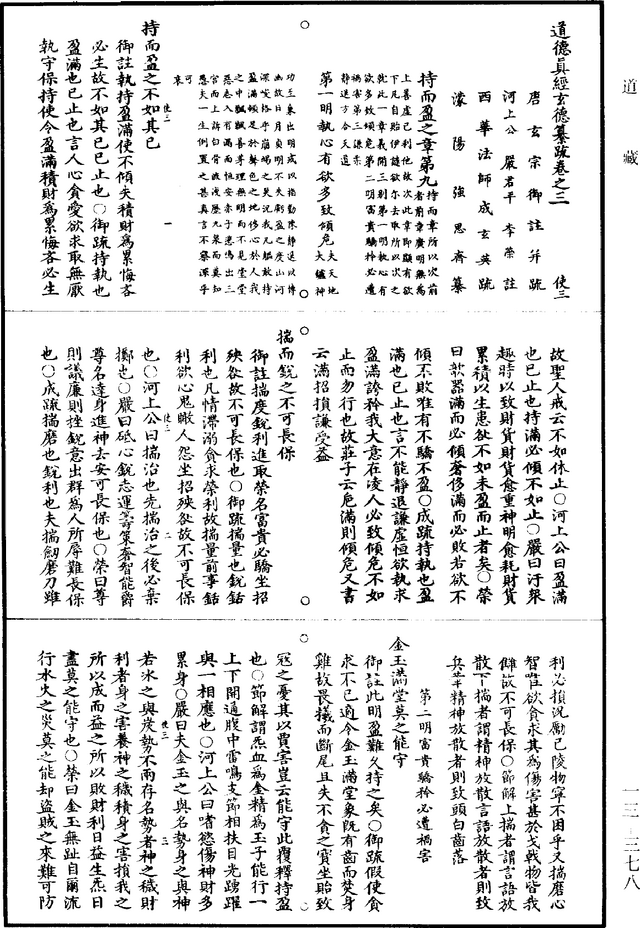 道藏
道德真經玄德纂疏卷之三　使三
唐玄宗御註并疏
河上公嚴君平李榮註
西華法師成玄英疏
濛陽強思齊纂
持而盈之章第九
第一明執心有欲多致傾危
持而盈之不如其已
御註執持盈滿使不傾失積財為累悔吝
必生故不如其已已止也○御疏持執也
盈滿也已止也言人心貪愛欲求取無厭
執守保持使令盈滿積財為累悔吝必生
故聖人戒云不如休止○河上公曰盈滿
也已止也持滿必傾不如止○嚴曰汙衆
趣時以致財貨財貨愈重神明愈耗財貨
累積以生患故不如未盈而止者矣○榮
曰欹器滿而必傾奢侈滿而必敗若欲不
傾不敗唯有不驕不盈○成疏持執也盈
滿也已止也言不能靜退謙虛恒欲執求
盈滿誇矜我大意在凌人必致傾危不如
止而勿行也故莊子云巵滿則傾危又書
云滿招損謙受益
揣而銳之不可長保
御註揣度銳利進取榮名富貴必驕坐招
殃咎故不可長保也○御疏揣量也銳銛
利也凡情滯溺貪求榮利故揣量前事銛
利欲心鬼瞰人怨坐招殃咎故不可長保
也○河上公曰揣治也先揣治之後必棄
擲也○嚴曰砥心銳志運籌策奮智能爵
尊名達身進神去安可長保也○榮曰尊
則議廉則挫銳意出群為人所辱難長保
也○成疏揣磨也銳利也夫揣劒磨刀雖
利必損況勵己陵物寧不困乎又揣磨心
智唯欲貪求其為傷害甚於戈戟物皆我
讎故不可長保○節解上揣者謂言語放
散下揣者謂精神放散言語放散者則致
兵革精神放散者則致頭白齒落
第二明富貴驕矜必遭禍害
金玉滿堂莫之能守
御註此明盈難久持之矣○御疏假使貪
求不已適令金玉滿堂象既有齒而焚身
雞故畏犧而斷尾且失不貪之寶坐貽致
寇之憂其以賈害豈云能守此覆釋持盈
也○節解謂炁血為金精為玉子能行一
上下開通腹中雷鳴支節相扶目光踴躍
與一相應也○河上公曰嗜慾傷神財多
累身○嚴曰夫金玉之與名勢身之與神
若冰之與炭勢不兩存名勢者神之穢財
利者身之害養神之穢積身之害損我之
所以成而益之所以敗財利日益生炁日
盡莫之能守也○榮曰金玉無趾自爾流
行水火之災莫之能却盜賊之來難可防
一三—三七八